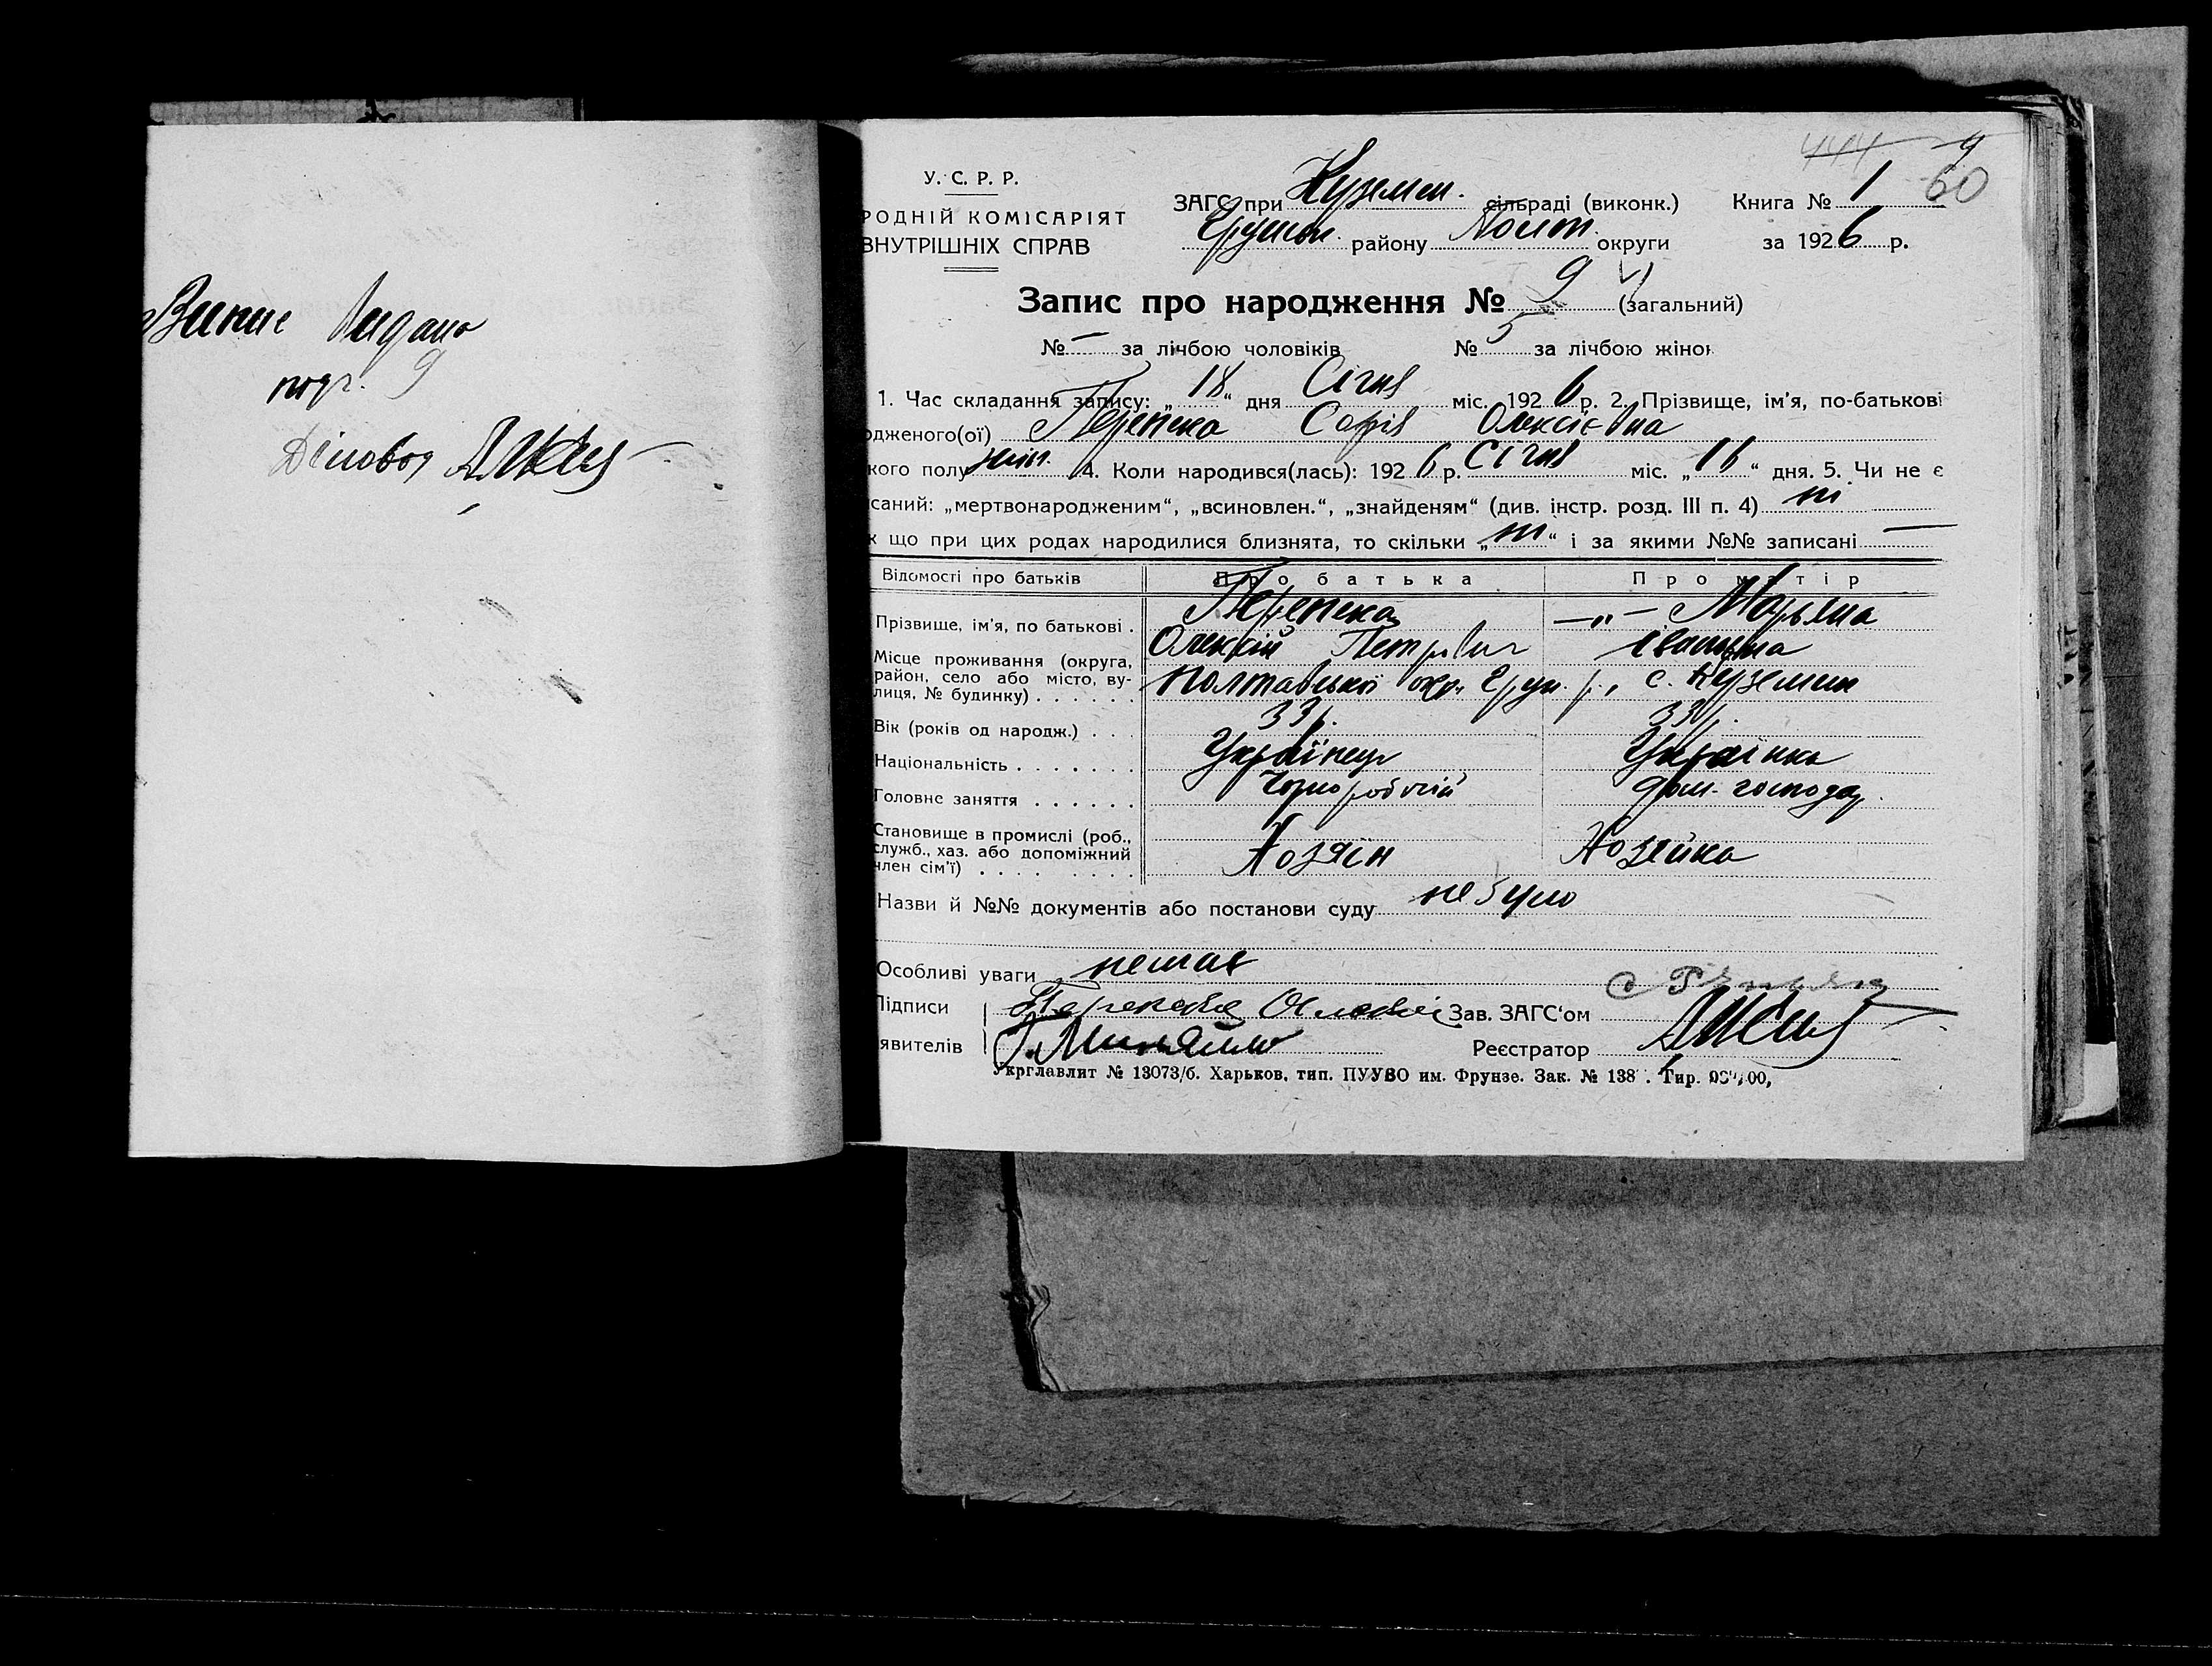 Випис видано
подг. 9
Діловод
444 9
60
У. С. Р. Р.
РОДНІЙ КОМІСАРІЯТ
ВНУТРІШНІХ СПРАВ
ЗАГС при Куземен. сільраді (виконк.)
Грунськ. району Полт. округи
Книга № 1
за 1926 р.
Запис про народження № 9 (загальний)
№ — за лічбою чоловіків № 5 за лічбою жінок
1. Час складання запису: „18“ дня Січня міс. 1926 р. 2. Прізвище, ім'я, по-батькові
одженого(ої) Перепека Софія Олексіївна
кого полу жіноч. 4. Коли народився(лась): 1926 р. Січня міс. „16“ дня. 5. Чи не є
саний: „мертвонародженим“, „всиновлен.“, „знайденям“ (див. інстр. розд. III п. 4) ні
к що при цих родах народилися близнята, то скільки „ні“ і за якими №№ записані —
Відомості про батьків Про батька Про матір
Прізвище, ім'я, по батькові . Перепека —„— Мар'яна
Олексій Петрович Іванівна
Місце проживання (округа, район, село або місто, вулиця, № будинку) . . . . . . Полтавської окр. Грун. р., с. Куземин
Вік (років од народж.) . . . 33 р. 33 р.
Національність . . . . . . . Українец Українка
Головне заняття . . . . . . Чорноробочій дом. господар.
Становище в промислі (роб., служб., хаз. або допоміжний член сім'ї) . . . . . . . . Хозяїн Хозяйка
Назви й №№ документів або постанови суду не було
Особливі уваги немає
Підписи Перепека Олексій Зав. ЗАГС‘ом
явителів Реєстратор
Укрглавлит № 13073/б. Харьков, тип. ПУУВО им. Фрунзе. Зак. № 138 . Тир.